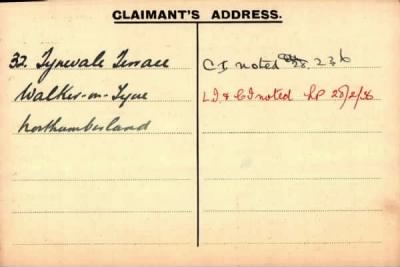 CLAIMANT'S ADDRESS.
32. Tynevale Terrace
Walker-on-Tyne
Northumberland
C.I noted 28.2.36
L.I. & C.I noted LP 28/2/36